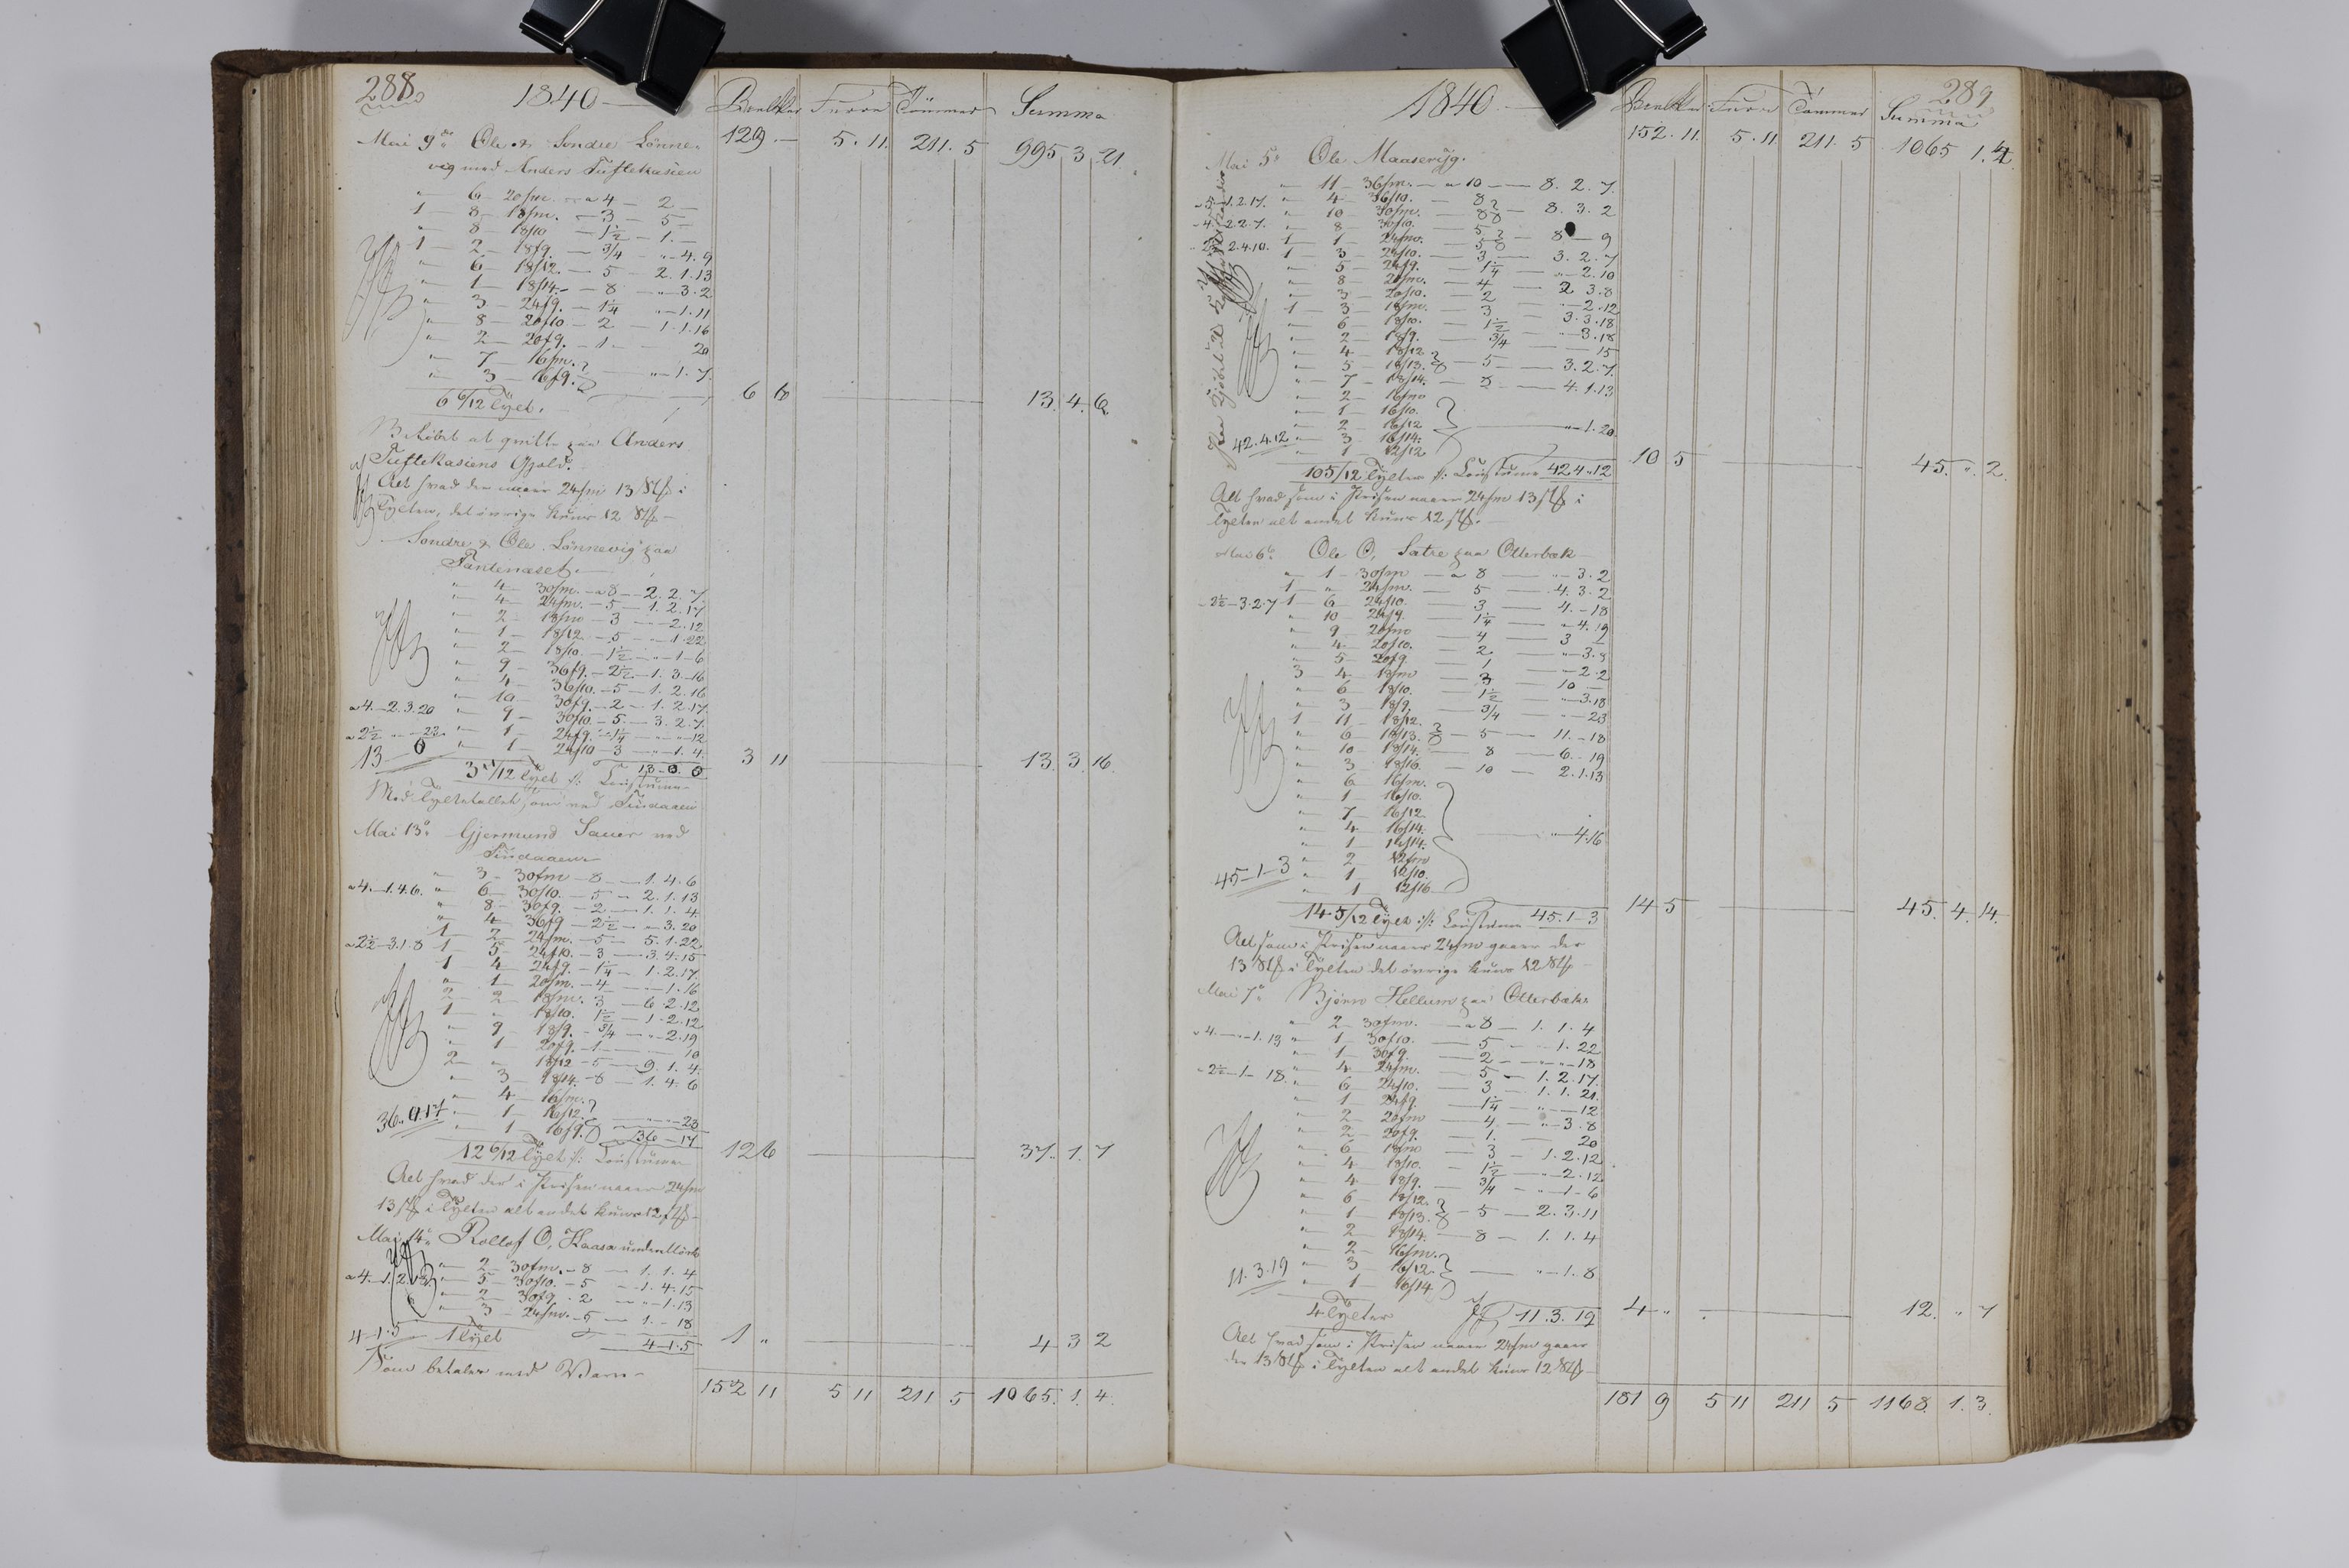 288 1840 Bielker Furre Tømmer Summa
129 — 5. 11. 211. 5 995 3. 21.
Mai 9de Ole & Sondre Lønne-
vig med Anders Tuftekasien
" 6 - 20/m. - a 4 - 2 -
1 - 8 - 18/m. - 3 - 5 -
" 8 - 18/10 - 1½ - 1. -
1 - 2 - 18/9. - 3/4 - " 4. 9
" 6 - 18/12. - 5 - 2. 1. 13
" 1 - 18/14. - 8 - " 3. 2
" 3 - 24/9. - 1¼ - " 1. 11
" 8 - 20/10 - 2 - 1. 1. 16
" 2 - 20/9. - 1 - 20
" 7 - 16/m.
" 3 - 16/9. - " 1. 7.
6 6/12 Tylt. 6 6 13. 4. 6.
at qvitte paa Anders
Tuftekasiens Gjæld.
Alt hvad der naaer 24/m 13 Stk i
Tylten, det øvrige kuns 12 Stk -
Sondre & Ole Lønnevig paa
Tantenæset.
" 4 - 30/m. - a 8 - 2. 2. 7.
" 4 - 24/m. - 5 - 1. 2. 17
" 2 - 18/m - 3 - " 2. 12
" 1 - 18/12 - 5 - " 1. 22
" 2 - 18/10. - 1½ - " 1 - 6
" 9 - 36/9. - 2½ - 1. 3. 16
" 4 - 36/10. - 5 - 1. 2. 16
" 10 - 30/9. - 2 - 1. 2. 17.
a 4. - 2. 3. 20 " 9 - 30/10. - 5 - 3. 2. 7.
" 1 - 24/9. - 1¼ - " 12
a 2½ - " - 23. " 1 - 24/10 - 3 - " 1. 4.
13 0
3 11/12 Tylt 13 - 0. 0 3 11 13. 3. 16.
Med Tyltetallet som ved Tindaaen
Mai 13de Gjermund Sauer ved
Tindaaen
" 3 - 30/m - 8 - 1. 4. 6
a 4. - 1. 4. 6. " 6 - 30/10. - 5 - 2. 1. 13
" 8 - 30/9. - 2 - 1. 1. 4.
" 4 - 36/9 - 2½ - " 3. 20
1 - 2 - 24/m. - 5 - 5. 1. 22
a 2½ - 3. 1. 8 1 5 - 24/10. - 3 - 3. 4. 15
1 - 4 - 24/9. - 1¼ - 1. 2. 17.
" 1 - 20/m. - 4 - " 1. 16
2 - 2 - 18/m. 3 - 6. 2. 12
1 - " - 18/10. 1½ - 1. 2. 12
" 9 - 18/9. - 3/4 - " 2. 19
" 1 - 20/9. - 1 - 10
2 - " - 18/12 - 5 - 9. 1. 4.
" 3 - 18/14. - 8 - 1. 4. 6
" 4 - 16/m.
36. 0. 17 " 1 - 16/12
" 1 - 16/9. - " 23
36 - 17
12 6/12 Tylt 12 6 37. 1. 7
Alt hvad der i Prisen naaer 24/m
13 Stk i Tylten alt andet kuns 12 Stk -
Mai 14de Rollof O. Haasa
" 2 - 30/m. - 8 - 1. 1. 4
a 4. - 1. 2. 13 " 5 - 30/10. - 5 - 1. 4. 15
" 2 - 30/9. - 2 - " 1. 13
" 3 - 24/m. - 5 - 1. - 18
4 - 1. 5 1 Tylt 4 - 1. 5 1 " 4 3 2
Som betales med Varer -
152 11 5 11 211 5 1065. 1. 4.
1840 289
Bielker Furre Tømmer Summa
152. 11. 5. 11 211. 5 1065 1. 4
Mai 5de Ole Maaserijg.
" 11 - 36/m. - a 10 - 8. 2. 7.
a 5 - 1. 2. 17. " 4 - 36/10. - 8
" 10 - 30/m. - 8 - 8. 3. 2
a 4. - 2. 2. 7. " 8 - 30/10. - 5
1 1 - 24/m. - 5 - 8 - 9
2. 4. 10. 1 - 3 - 24/10. - 3 - 3. 2. 7
" 5 - 24/9. - 1¼ - " 2. 10
" 8 - 20/m. - 4 - 2 3. 8
" 3 - 20/10. - 2 - " 2. 12
1 3 - 18/m. - 3 - 3. 3. 18
" 6 - 18/10. - 1½ - " 3. 18
" 2 - 18/9. - 3/4 - 15
" 4 - 18/12.
" 5 - 18/13. - 5 - 3. 2. 7.
" 7 - 18/14. - 8 - 4. 1. 13
" 2 - 16/m
" 1 - 16/10.
" 2 - 16/12 - " 1. 20.
42. 4. 12 " 3 - 16/14.
" 1 - 12/12
10 5/12 Tylter 42 4 " 12 10 5 45. " 2.
Alt hvad som i Prisen naaer 24/m 13 Stk i
Tylten alt andet kuns 12 Stk. -
Mai 6te Ole O. Satre paa Otterbæk
" 1 - 30/m - a 8 - " 3. 2
1 - " - 24/m. - 5 - 4. 3. 2
- 2½ - 3. 2. 7 1 - 6 - 24/10. - 3 - 4. - 18
" 10 - 24/9. - 1¼ - " 4. 19
" 9 - 20/m - 4 - 3 -
" 4 - 20/10. - 2 - " 3. 8
" 5 - 20/9. - 1 - " 2. 2
3 4 - 18/m - 3 - 10 -
" 6 - 18/10. - 1½ - " 3. 18
" 3 - 18/9. - 3/4 - " 23
1 11 - 18/12.
" 6 - 18/13. - 5 - 11. - 18
" 10 - 18/14. - 8 - 6. - 19
" 3 - 18/16. - 10 - 2. 1. 13
" 6 - 16/m.
" 1 - 16/10.
" 7 - 16/12
" 4 - 16/14. - " 4. 16
" 1 - 14/14.
" 2 - 12/m
45 - 1 - 3 " 1 - 12/10.
" 1 12/16
14 5/12 Tylt 45. 1 - 3 14 5 45. 4. 14.
Alt som i Prisen naaer 24/m gaaer der
13 Stk i Tylten det øvrige kuns 12 Stk -
Mai 7de Bjørn Hellum paa Otterbæk.
" 2 - 30/m. - a 8 - 1. 1. 4
a 4. - " 1. 13 " 1 - 30/10. - 5 - 1. 22
" 1 - 30/9. - 2 - " 18
- 2½ - 1 - 18. " 4 - 24/m. - 5 - 1. 2. 17.
" 6 - 24/10. - 3 - 1. 1. 21.
" 1 - 24/9. - 1¼ - " 12
" 2 - 20/m - 4 - " 3. 8
" 2 - 20/9. - 1. - 20
" 6 - 18/m - 3 - 1. 2. 12
" 4 - 18/10. - 1½ - " 2. 12
" 4 - 18/9. - 3/4 - " 1 - 6
" 6 - 18/12.
" 1 - 18/13. - 5 - 2. 3. 11
" 2 - 18/14. - 8 - 1. 1. 4
" 2 - 16/m.
11. 3. 19 " 3 - 16/12 - " 1. 8
" 1 - 16/14
4 Tylter 11. 3. 19 4 " 12. " 7
Alt hvad som i Prisen naaer 24/m gaaer
der 13 Stk i Tylten alt andet kuns 12 Stk -
181 9 5 11 211 5 1168. 1. 3.